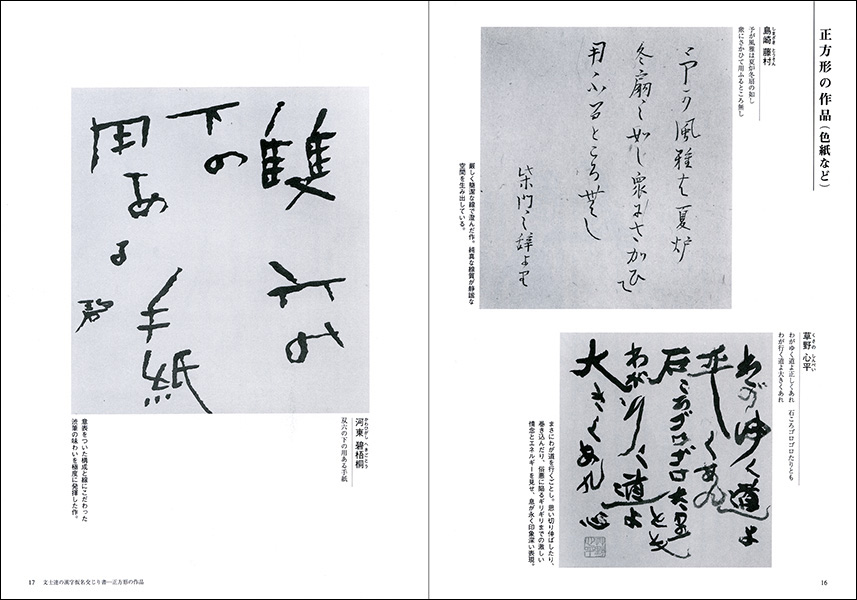 正方形の作品(色紙など)
島崎 藤村
しまざき とうそん
予が風雅は夏炉冬扇の如し
衆にさかひて用ふるところ無し
予が風雅は夏炉
冬扇之如し衆にさかひて
用ふるところ無し
柴門之辞より
厳しく簡潔な線で澄んだ作。純真な線質が静謐な
空間を生み出している。
草野 心平
くさの しんぺい
わがゆく道よ正しくあれ 石ころゴロゴロたりとも
わが行く道よ大きくあれ
わがゆく道よ
くあれ
石ころゴロゴロ
わが行く道よ
大きくあれ 心
まさにわが道を行くごとし。思い切り伸ばしたり、
巻き込んだり、俗悪に陥るギリギリまでの激しい
情念とエネルギーを見せ、息が永く印象深い表現。
16
雙六の
下の
用ある
手紙
碧
河東 碧梧桐
かわひがし へきごとう
双六の下の用ある手紙
意表をついた構成と線にこだわった
渋筆の味わいを極度に発揮した作。
17 文士達の漢字仮名交じり書―正方形の作品